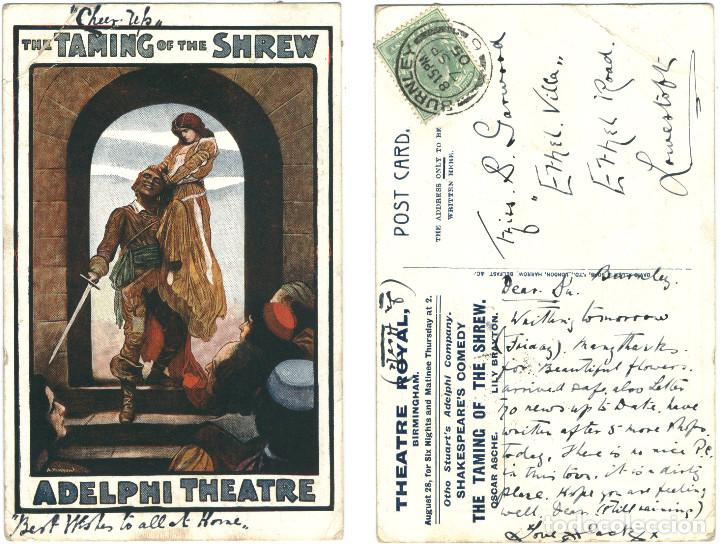 "Cheer Up"
THE TAMING OF THE SHREW
A. FORREST
ADELPHI THEATRE
"Best Wishes to all at Home"
BURNLEY
8 15 PM
SP
05
POST CARD.
THE ADDRESS ONLY TO BE
WRITTEN HERE.
Miss S. Garwood
"Ethel Villa"
Ethel Road.
Lowestoft
LTD., LONDON, HARROW, BELFAST, &C.
THEATRE ROYAL,
BIRMINGHAM.
August 28, for Six Nights and Matinee Thursday at 2.
Otho Stuart's Adelphi Company.
SHAKESPEARE'S COMEDY
THE TAMING OF THE SHREW.
OSCAR ASCHE. LILY BRAYTON.
Burnley.
Dear
Writing tomorrow
(Friday). Many thanks
for Beautiful flowers.
arrived safe, also letter
no news up to Date, have
written after 5 more Shops
today. There is no nice P.C.
in this town. it is a dirty
place. Hope you are feeling
well, Dear. (Still raining)
Love Jack x
todocoleccion